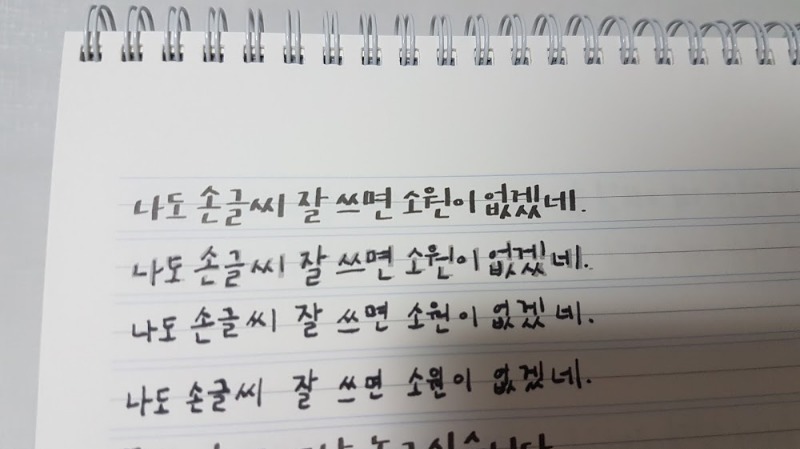 나도 손글씨 잘 쓰면 소원이 없겠네.
나도 손글씨 잘 쓰면 소원이 없겠네.
나도 손글씨 잘 쓰면 소원이 없겠네.
나도 손글씨 잘 쓰면 소원이 없겠네.